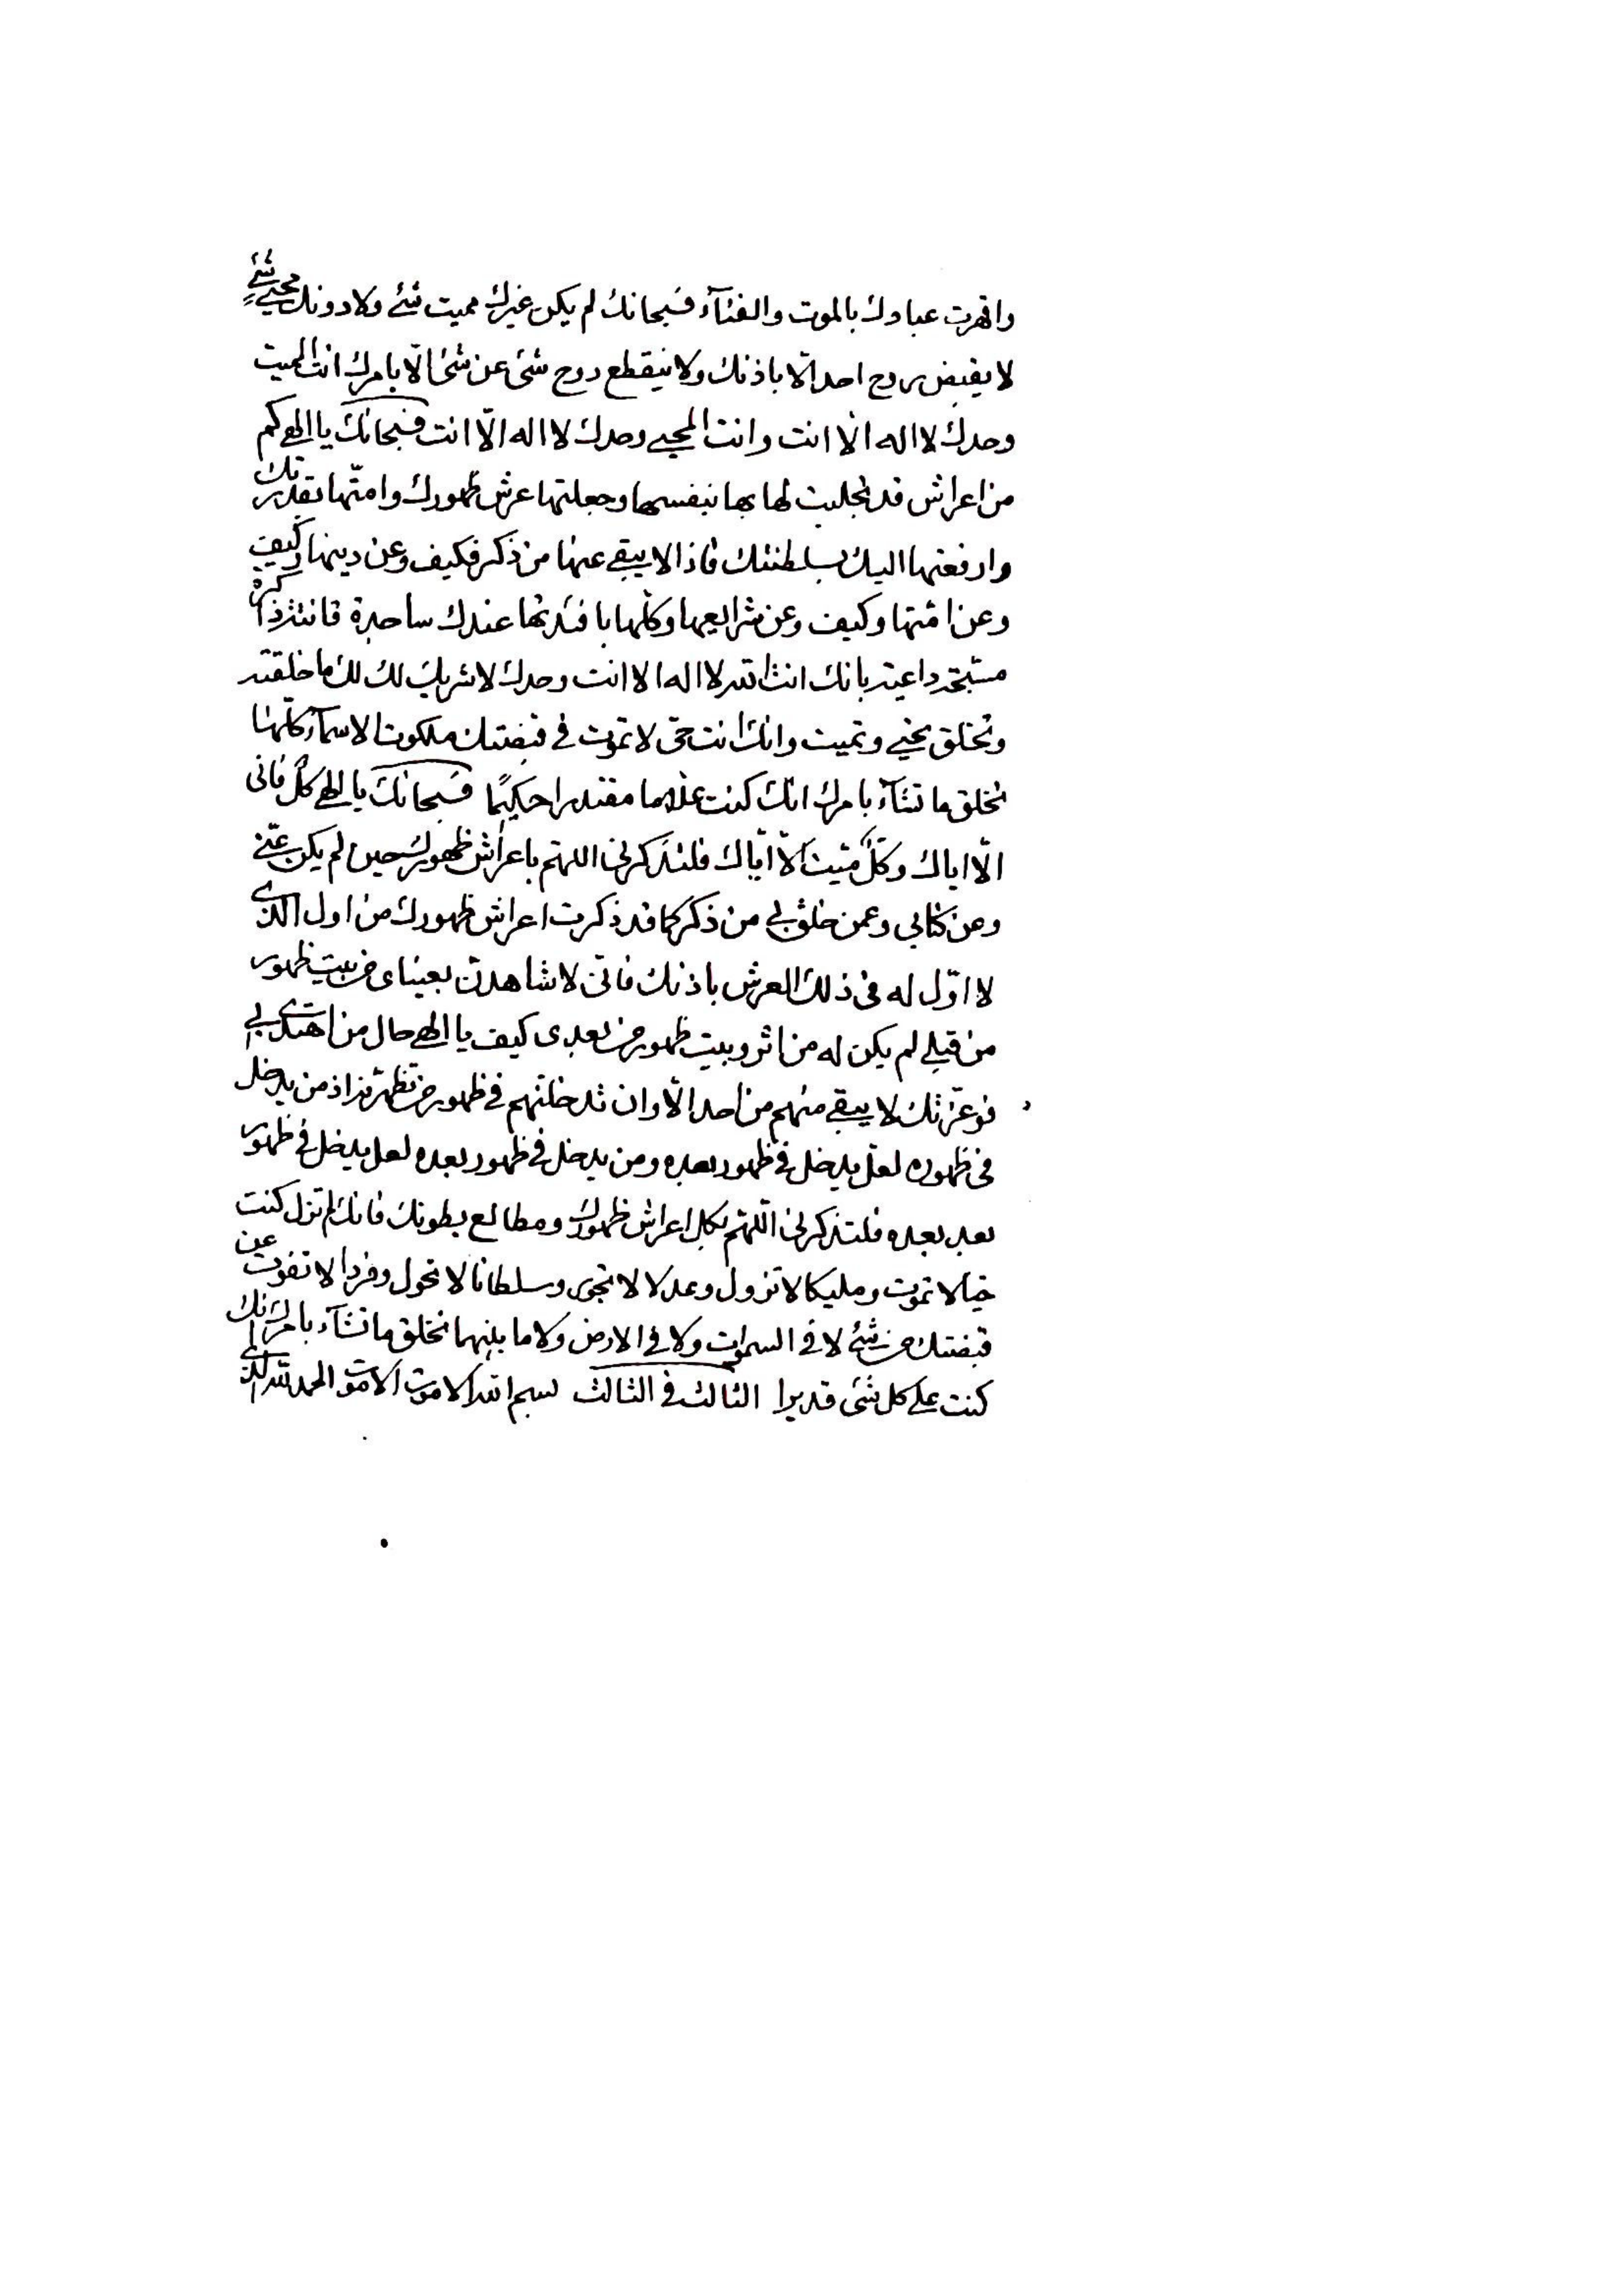 واقهرت عبادك بالموت والفنآء فسبحانك لم يكن غيرك مميت شئ ولا دونك محيي شئ
لا يقبض روح احد الّا باذنك ولا ينقطع روح شئ عن شئ الّا بامرك انت المميت
وحدك لا اله الّا انت وانت المحيي وحدك لا اله الّا انت فسبحانك يا الهي كم
من اعراش قد تجليت لها بها بنفسها وجعلتها عرش ظهورك وامتّها بقدرتك
وارفعتها اليك بسلطنتك فاذا لا يبقى عنها من ذكر فكيف وعن دينها وكيف
وعن امّتها وكيف وعن شرايعها وكلها بافئدتها عندك ساجدة
بانك انت الله لا اله الا انت وحدك لا شريك لك لك ما خلقته
وتخلق تحيي وتميت وانك انت حيّ لا تموت في قبضتك ملكوت الاسمآء كلّها
تخلق ما تشآء بامرك انك كنت علاما مقتدرا حكيمًا فسبحانك يا الهي كلّ فاني
الّا اياك وكلّ ميّت الّا ايّاك فلتذكرني اللهم باعراش ظهورك حين لم يكن عنّي
وعن كتابي وعمن خلق بي من ذكر كما قد ذكرت اعراش ظهورك من اول الذي
لا اوّل له في ذلك العرش باذنك فانّي لا شاهدنّ بعيناي من بيت ظهور
من قبلي لم يكن له من اثر وبيت ظهور من بعدي كيف يا الهي حال من اهتدى بي
فوعزتك لا يبقى منهم من احد الّا وان تدخلنهم في ظهور من تظهرنه اذ من يدخل
في ظهوره لعل يدخل في ظهور بعده ومن يدخل في ظهور بعده لعل يدخل في ظهور
بعد بعده فلتذكرني اللّهم بكل اعراش ظهورك ومطالع بطونك فانك لم تزل كنت
حيّا لا تموت ومليكا لا تزول وعدلا لا تجور وسلطانا لا تحول وفردا لا تفوت عن
قبضتك من شئ لا في السموات ولا في الارض ولا ما بينهما تخلق ما تشآء بامرك انك
كنت على كل شئ قديرا الثالث في الثالث بسم الله الاموت الاموت الحمد لله الذي